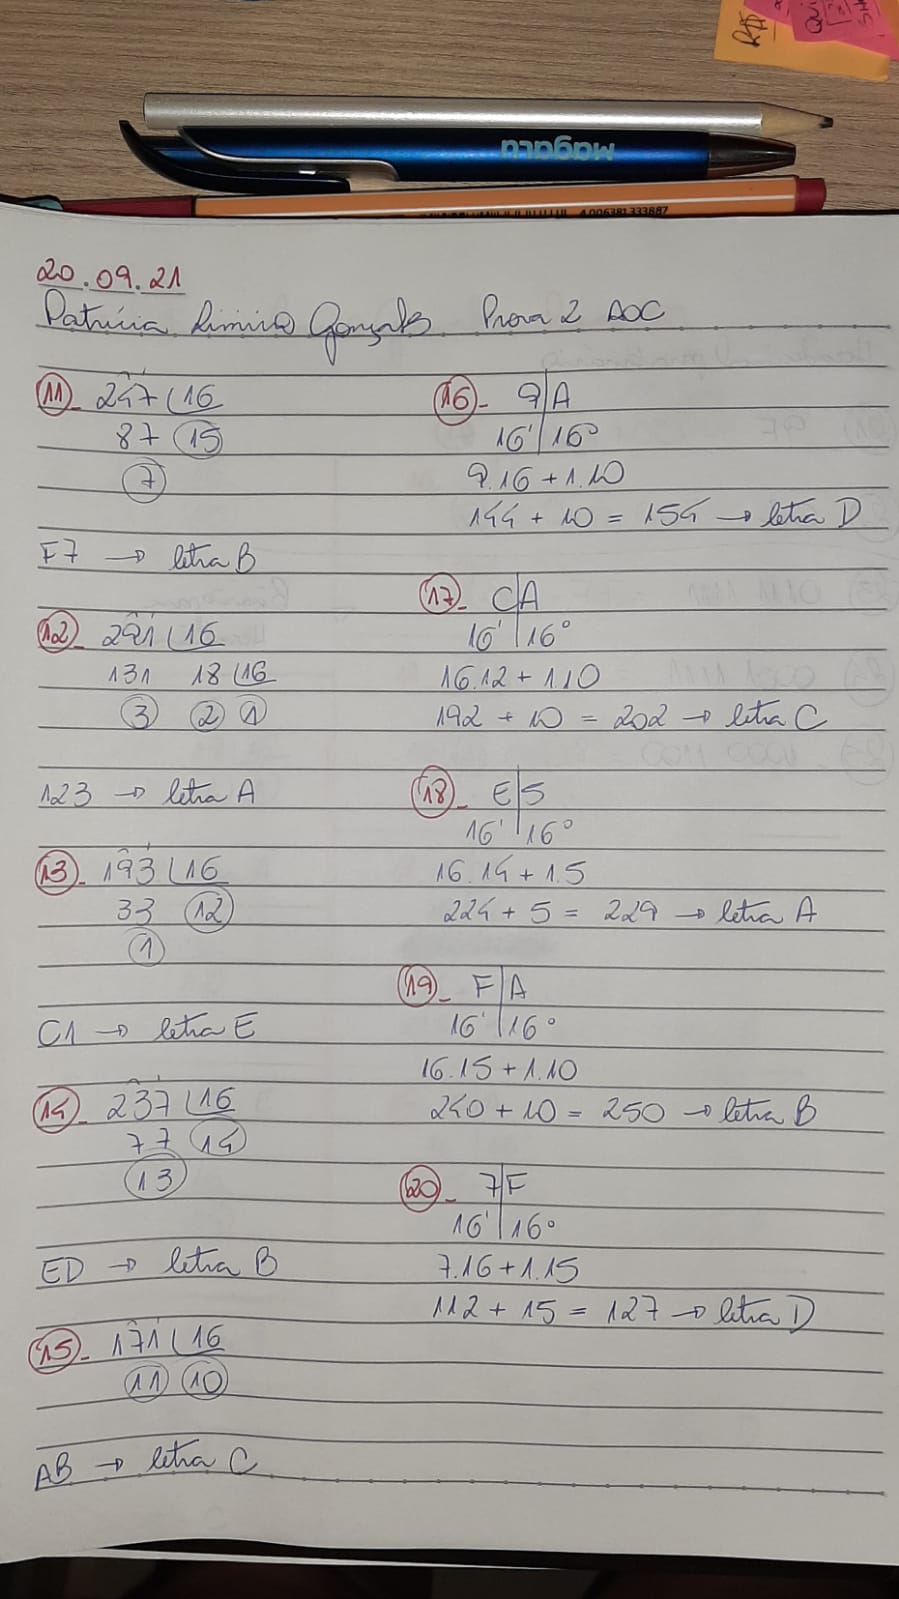 R$
QUI
Magalu
4 006381 333887
20.09.21
Patrícia Gonçalves Prova 2 AOC
11- 247 16
87 15
7
F7 → letra B
12- 291 16
131 18 16
3 2 1
123 → letra A
13- 193 16
33 12
1
C1 → letra E
14- 237 16
77 14
13
ED → letra B
15- 171 16
11 10
AB → letra C
16- 9 A
16¹ 16⁰
9.16 + 1.10
144 + 10 = 154 → letra D
17- C A
16¹ 16⁰
16.12 + 1.10
192 + 10 = 202 → letra C
18- E 5
16¹ 16⁰
16.14 + 1.5
224 + 5 = 229 → letra A
19- F A
16¹ 16⁰
16.15 + 1.10
240 + 10 = 250 → letra B
20- 7 F
16¹ 16⁰
7.16 + 1.15
112 + 15 = 127 → letra D